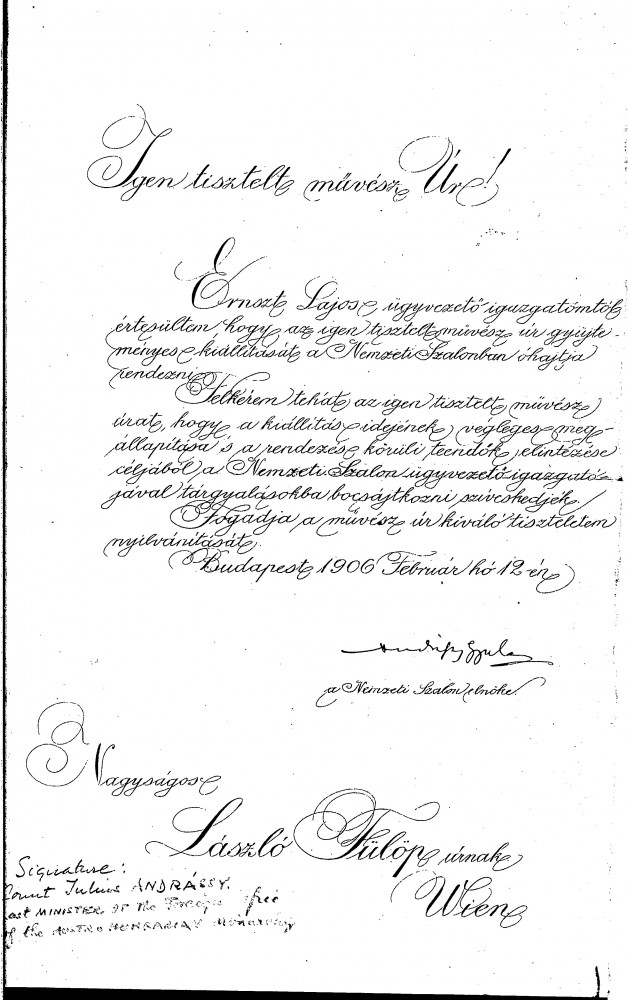 Igen tisztelt művész Úr!
Ernszt Lajos ügyvezető igazgatómtól
értesültem, hogy az igen tisztelt művész úr gyűjte-
ményes kiállítását a Nemzeti Szalonban óhajtja
rendezni.
Felkérem tehát az igen tisztelt művész
úrat, hogy a kiállítás idejének végleges meg-
állapítása s a rendezés körüli teendők elintézése
céljából a Nemzeti Szalon ügyvezető igazgató-
jával tárgyalásokba bocsájtkozni szíveskedjék.
Fogadja a művész úr kiváló tiszteletem
nyilvánítását.
Budapest 1906 Február hó 12-én
Andrássy Gyula
a Nemzeti Szalon elnöke.
Nagyságos
László Fülöp úrnak
Wien
Signature:
Count Julius ANDRÁSSY.
last MINISTER of the Foreign
of the AUSTRO HUNGARIAN Monarchy